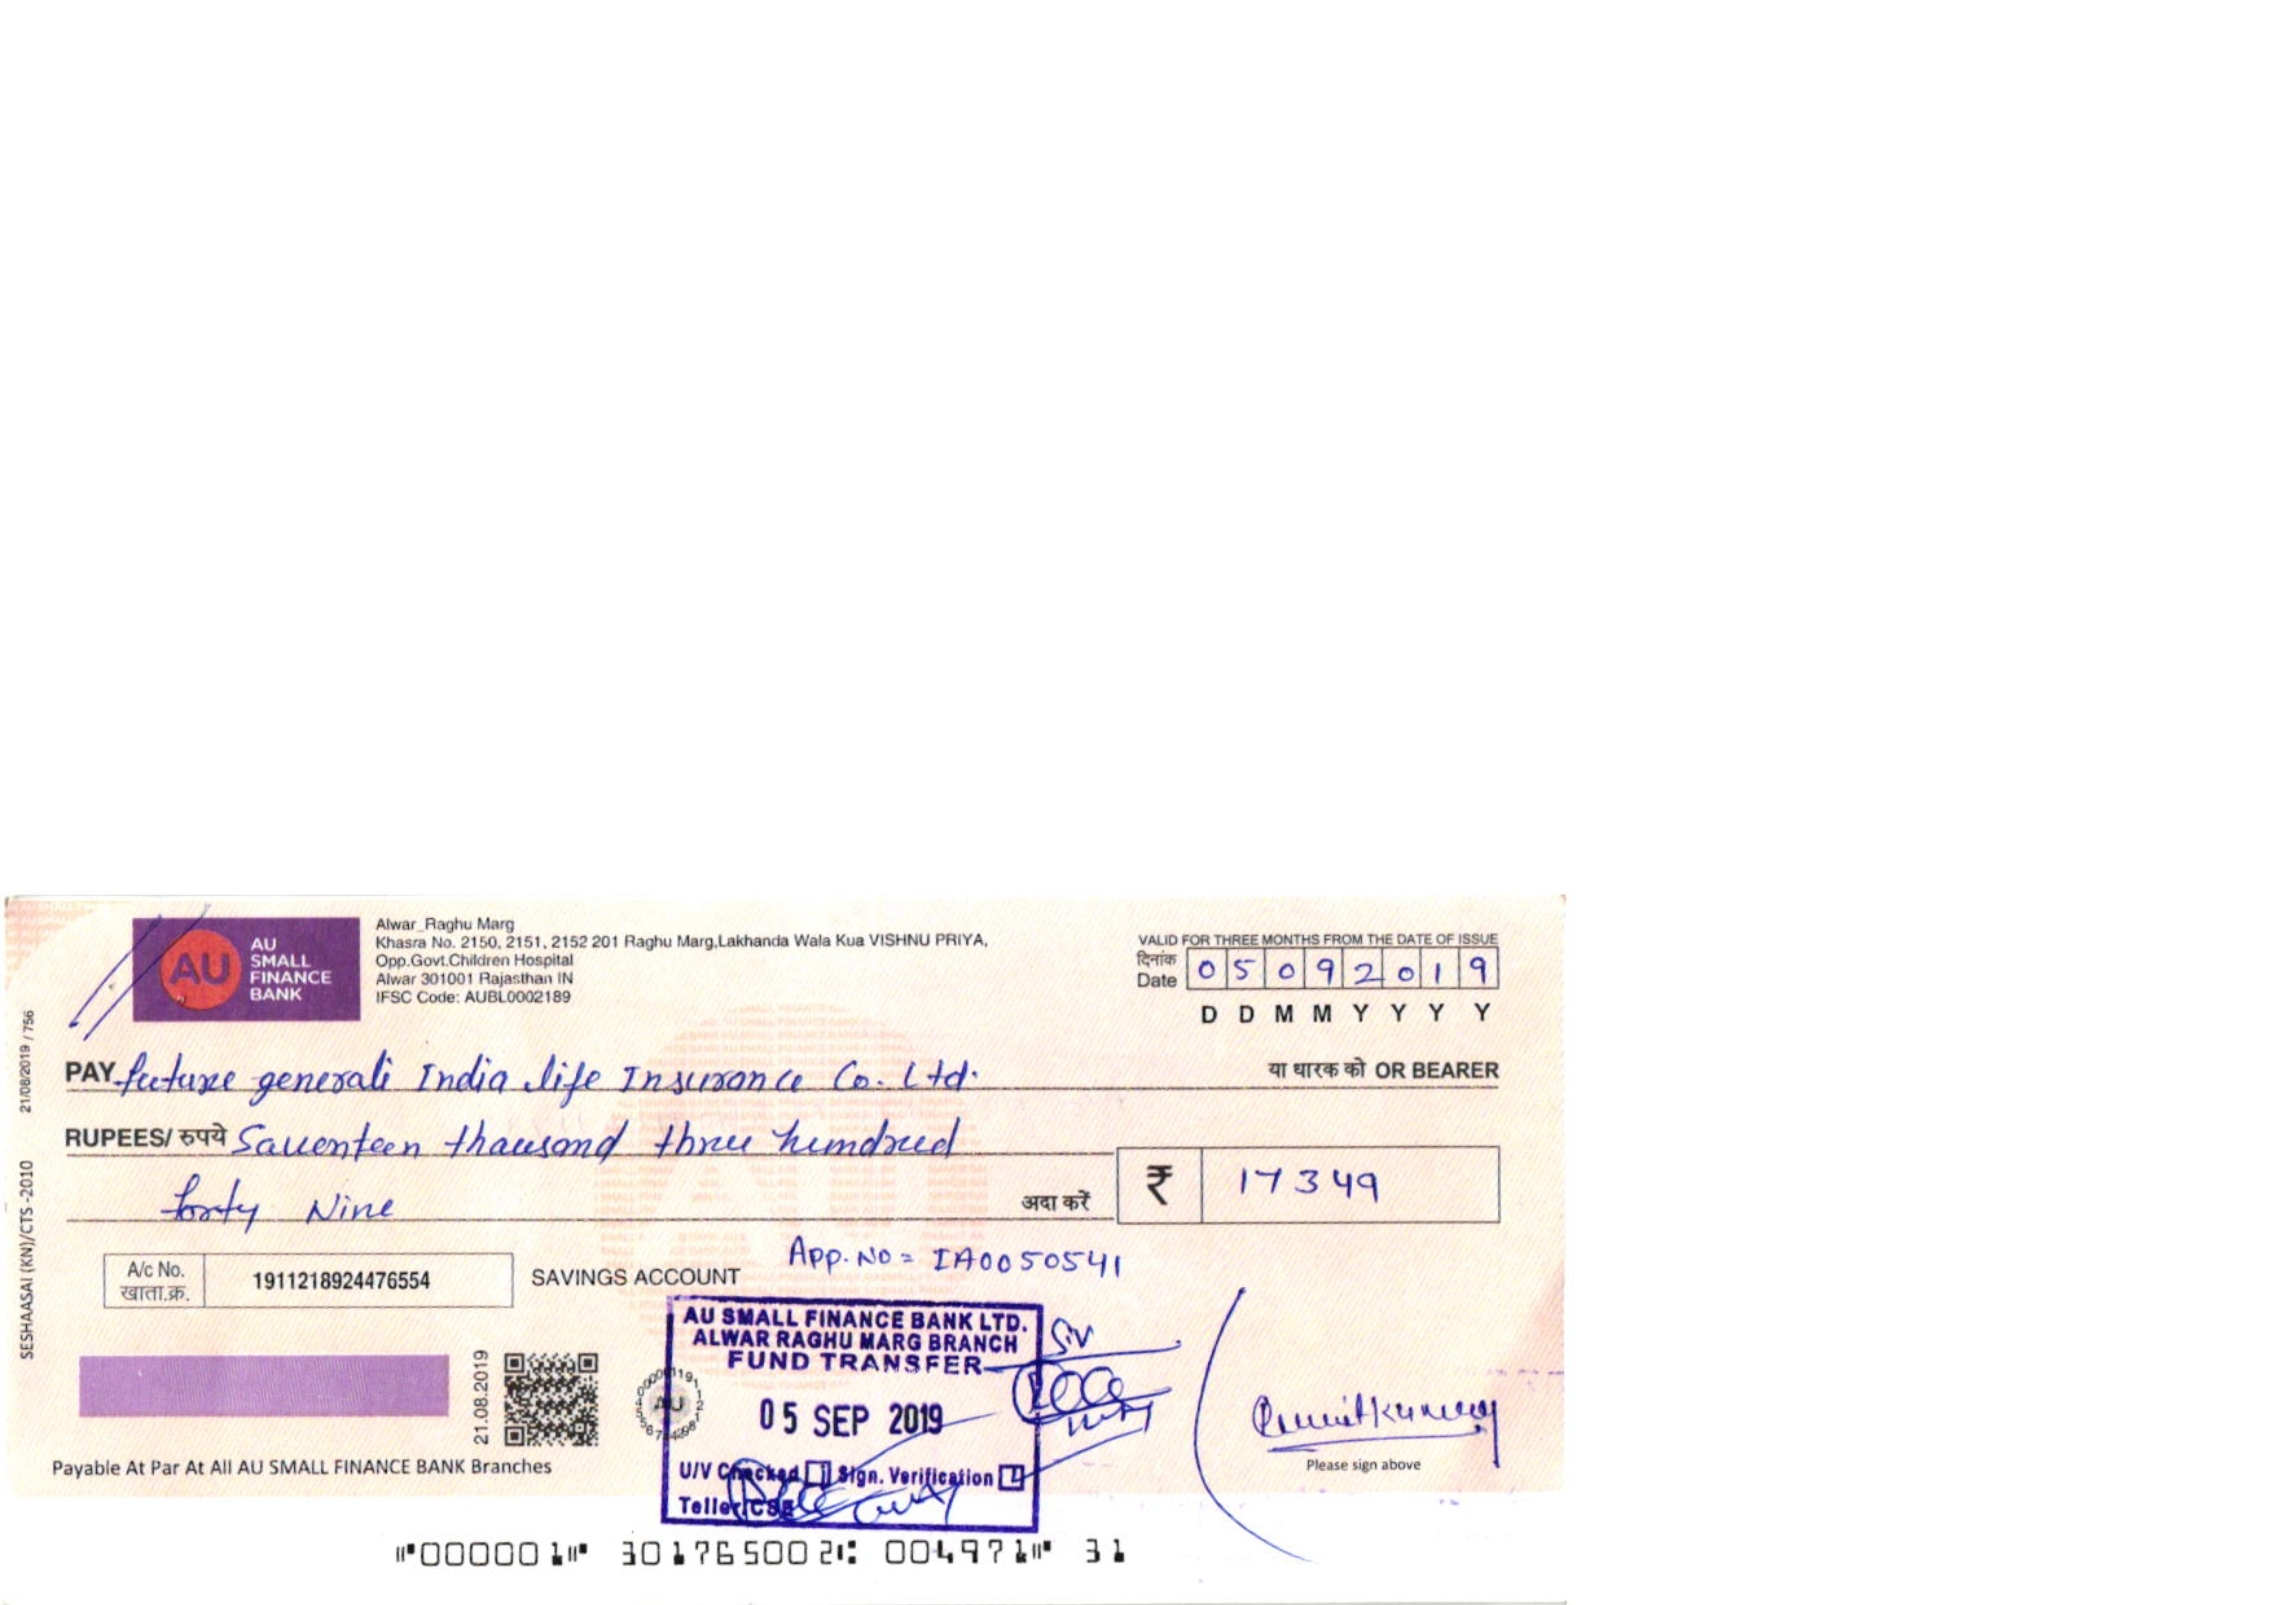 AU
AU
SMALL
FINANCE
BANK
Alwar_Raghu Marg
Khasra No. 2150, 2151, 2152 201 Raghu Marg,Lakhanda Wala Kua VISHNU PRIYA,
Opp.Govt.Children Hospital
Alwar 301001 Rajasthan IN
IFSC Code: AUBL0002189
VALID FOR THREE MONTHS FROM THE DATE OF ISSUE
दिनांक
Date 0 5 0 9 2 0 1 9
D D M M Y Y Y Y
PAY future generali India life Insurance Co. Ltd.
या धारक को OR BEARER
RUPEES/ रुपये Sauenteen thausand three hundred
forty Nine
अदा करें
₹ 17349
A/c No.
खाता.क्र.
1911218924476554
SAVINGS ACCOUNT
App. No = IA0050541
AU SMALL FINANCE BANK LTD.
ALWAR RAGHU MARG BRANCH
FUND TRANSFER
05 SEP 2019
U/V Checked Sign. Verification
Teller/CSE
SV
21.08.2019
AU
Please sign above
Payable At Par At All AU SMALL FINANCE BANK Branches
SESHAASAI (KN)/CTS -2010
21/08/2019 / 756
⑈000001⑈ 301765002⑆ 004971⑈ 31